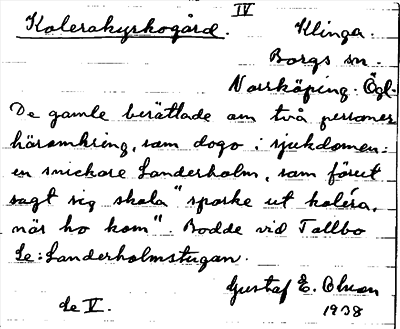 IV
Kolerakyrkogård.
Klinga.
Borgs sn.
Norrköping. Ögl.
De gamle berättade om två personer
häromkring, som dogo i sjukdomen:
en snickare Landerholm, som förut
sagt sig skola "sparke ut koléra,
när ho kom". Bodde vid Tallbo
Le: Landerholmstugan.
Gustaf E. Olson
de V.
1938